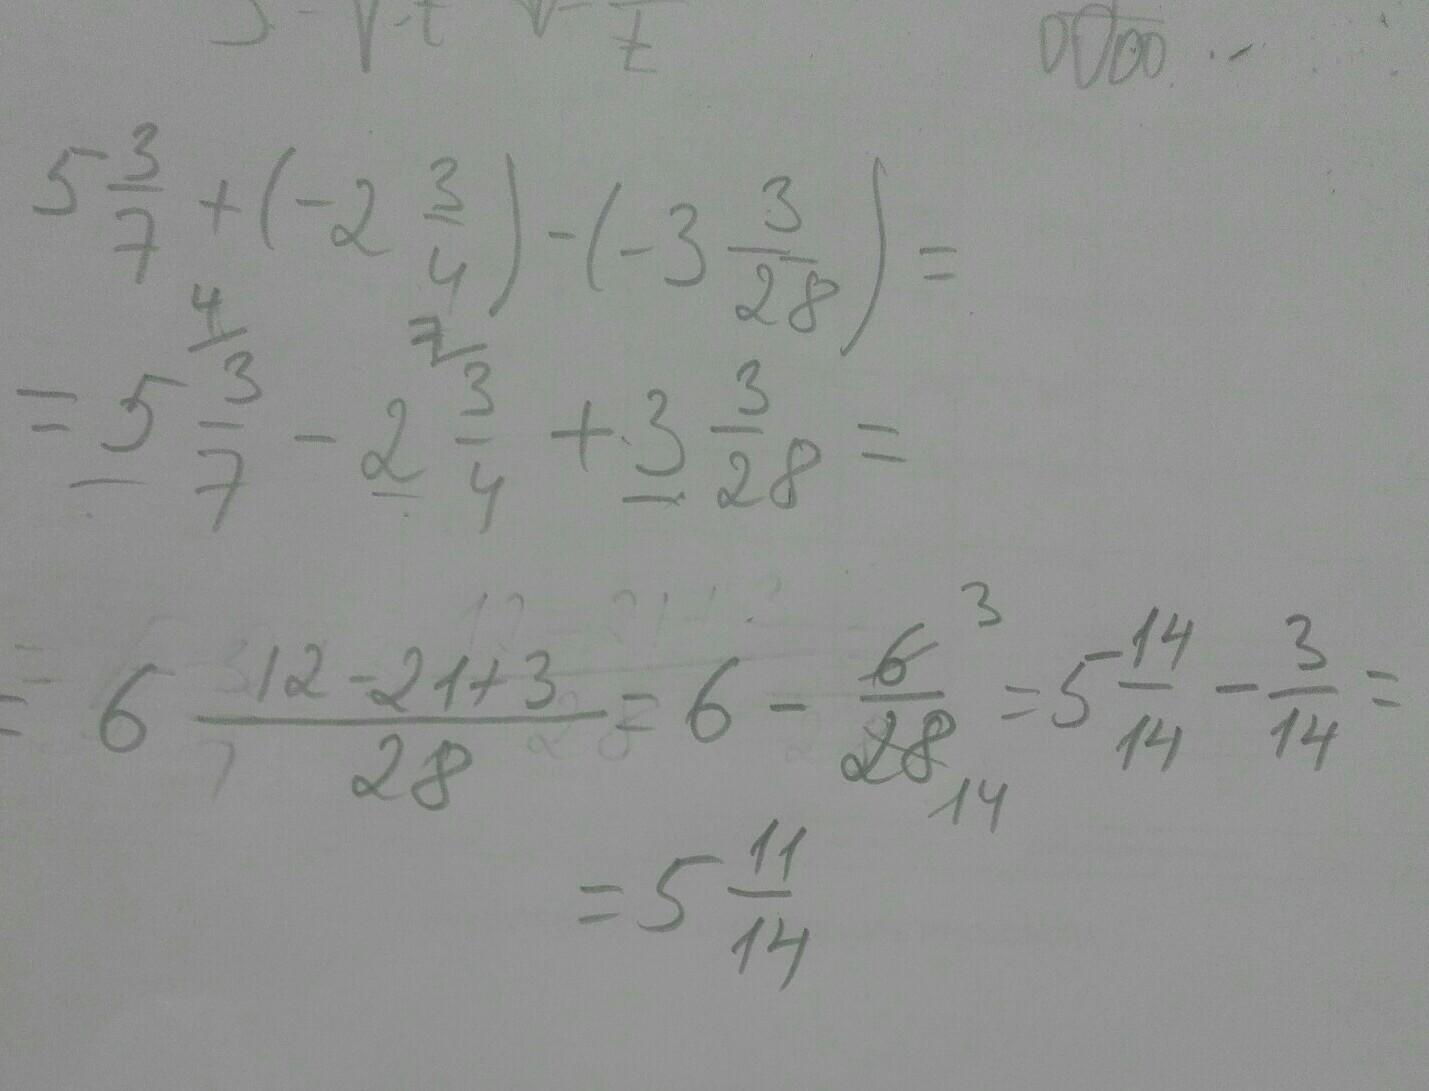 5 3/7 + (-2 3/4) - (-3 3/28) =
= 5 3/7 4/ - 2 3/4 7/ + 3 3/28 =
= 6 (12-21+3)/28 = 6 - 6/28 3 14 = 5 14/14 - 3/14 =
= 5 11/14